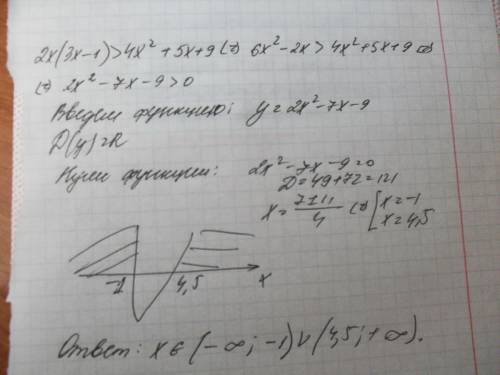 2x(3x-1)>4x²+5x+9 ⇔ 6x²-2x>4x²+5x+9 ⇔
⇔ 2x²-7x-9>0
Введем функцию: y=2x²-7x-9
D(y)=R
Нули функции: 2x²-7x-9=0
D=49+72=121
x=(7±11)/4 ⇔ [x=-1
x=4,5
-1 4,5 x
Ответ: x∈(-∞;-1)∪(4,5;+∞).